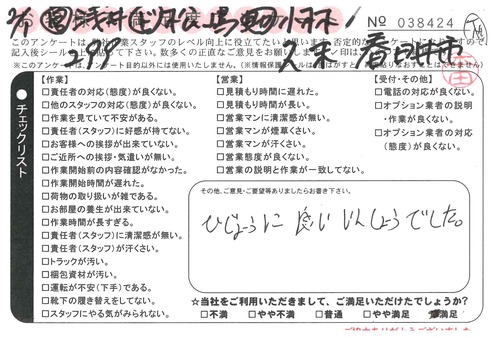 No 038424
このアンケートは
業スタッフのレベル向上に役立てたい
記入後シールを
って下さい。数多くの正直なご意見をお願いします
チェックリスト
【作業】
□責任者の対応(態度)が良くない。
□他のスタッフの対応(態度)が良くない。
□作業を見ていて不安がある。
□責任者(スタッフ)に好感が持てない。
□お客様への挨拶が出来ていない。
□ご近所への挨拶・気遣いが無い。
□作業開始前の内容確認がなかった。
□作業開始時間が遅れた。
□荷物の取り扱いが雑である。
□お部屋の養生が出来ていない。
□作業時間が長すぎる。
□責任者(スタッフ)に清潔感が無い。
□責任者(スタッフ)が汗くさい。
□トラックが汚い。
□梱包資材が汚い。
□運転が不安(下手)である。
□靴下の履き替えをしてない。
□スタッフにやる気がみられない。
【営業】
□見積もり時間に遅れた。
□見積もり時間が長い。
□営業マンに清潔感が無い。
□営業マンが煙草くさい。
□営業マンが汗くさい。
□営業態度が良くない。
□営業の説明と作業が一致してない。
【受付・その他】
□電話の対応が良くない。
□オプション業者の説明
・作業が良くない。
□オプション業者の対応
(態度)が良くない。
その他、ご意見・ご要望等ありましたらお書き下さい。
ひじょうに良いいんしょうでした。
☆当社をご利用いただきまして、ご満足いただけたでしょうか?
□不満 □やや不満 □普通 □やや満足 満足